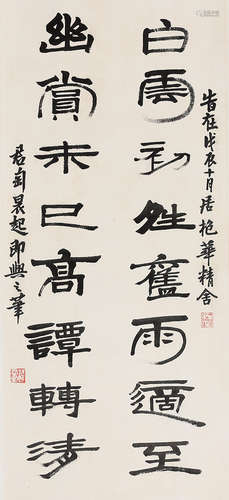 时在戊辰十月居艳華精舍
白雲初姓舊雨適至
幽賞未已高譚轉清
君匋晨起即興之筆